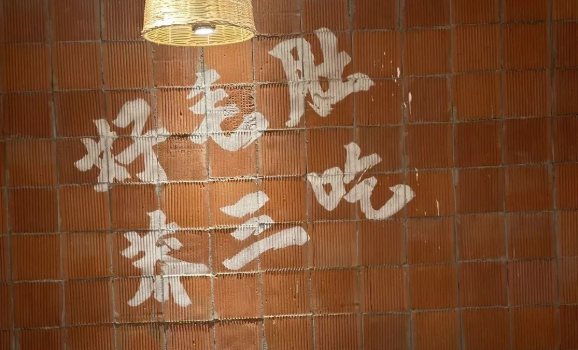 好毛肚
茶三吃